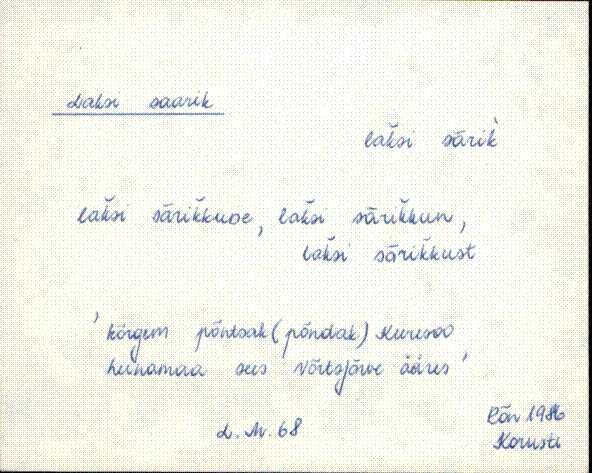 Laksi saarik
lak̆si särik̀
lak̆si särik̆kuoe, lak̆si särik̆kun,
lak̆si särik̆kust
'kõrgem põntsak (põndak) Kuresoo
heinamaa sees Võrtsjärve ääres'
L. M. 68
Rõn 1986
Korusti